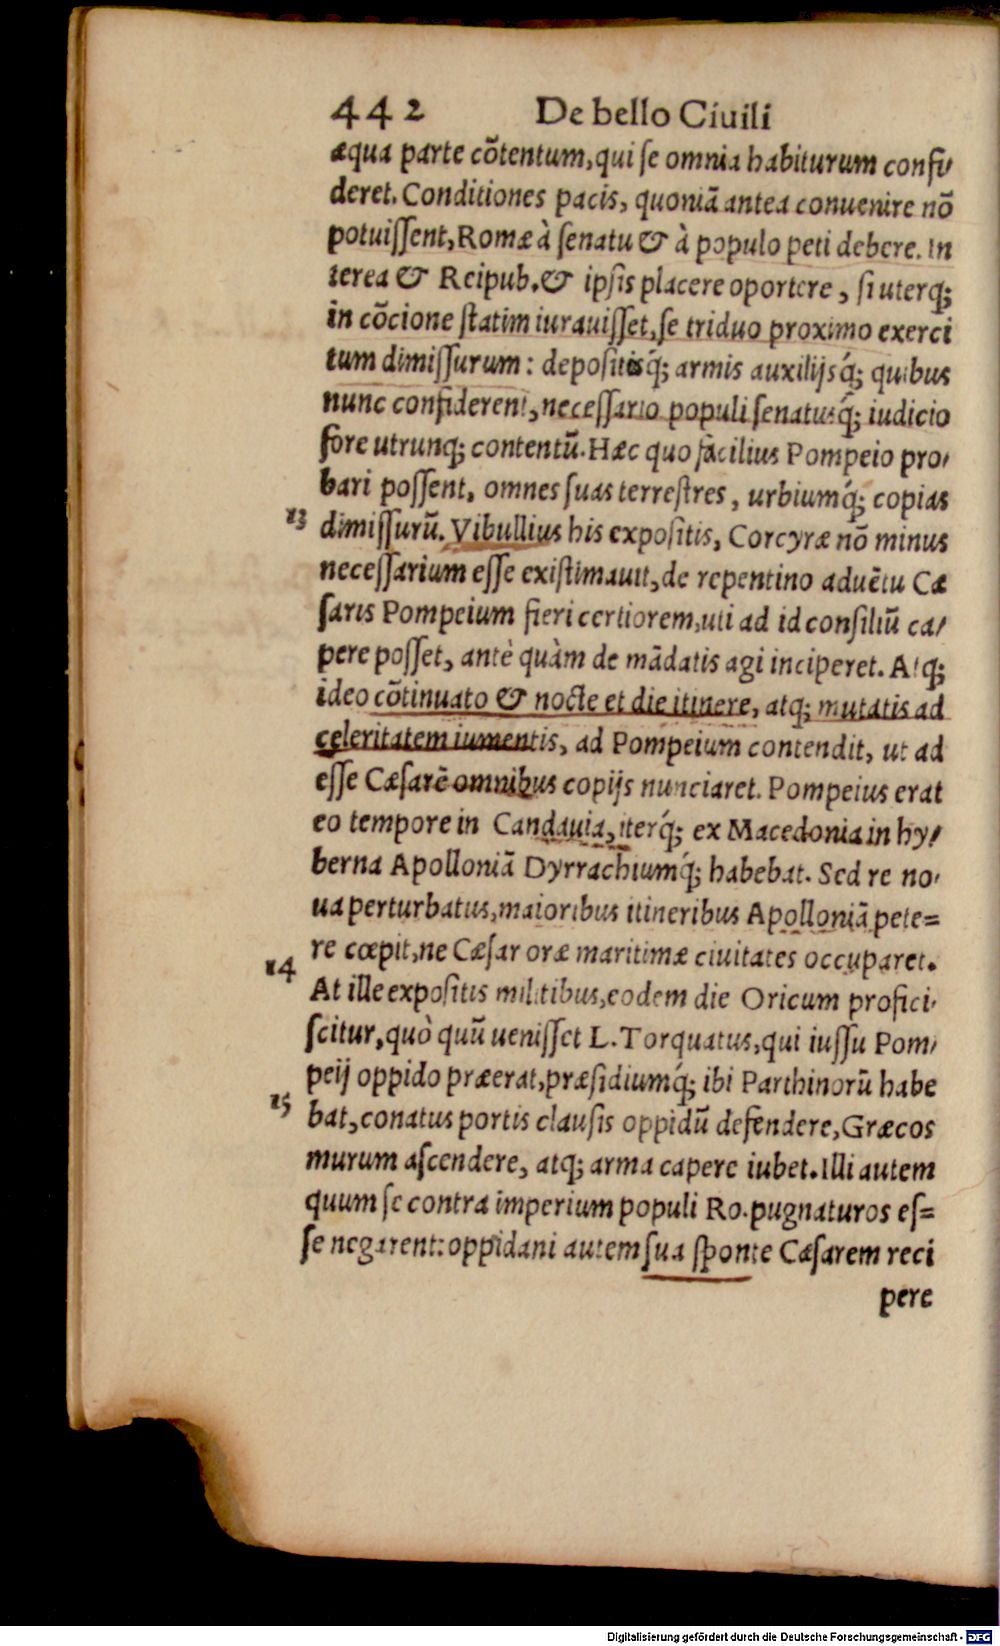 442 De bello Ciuili
æqua parte cõtentum, qui se omnia habiturum confi-
deret. Conditiones pacis, quoniã antea conuenire nõ
potuissent, Romæ à senatu & à populo peti debere. In
terea & Reipub. & ipsis placere oportere, si uterq;
in cõcione statim iurauisset, se triduo proximo exerci
tum dimissurum: depositisq́; armis auxilijsq́; quibus
nunc confiderent, necessario populi senatusq́; iudicio
fore utrunq; contentũ. Hæc quo facilius Pompeio pro-
bari possent, omnes suas terrestres, urbiumq́; copias
13 dimissurũ. Vibullius his expositis, Corcyræ nõ minus
necessarium esse existimauit, de repentino aduẽtu Cæ
saris Pompeium fieri certiorem, uti ad id consiliũ ca-
pere posset, antè quàm de mãdatis agi inciperet. Atq;
ideo cõtinuato & nocte et die itinere, atq; mutatis ad
celeritatem iumentis, ad Pompeium contendit, ut ad
esse Cæsarẽ omnibus copijs nunciaret. Pompeius erat
eo tempore in Candauia, iterq́; ex Macedonia in hy-
berna Apolloniã Dyrrachiumq́; habebat. Sed re no-
ua perturbatus, maioribus itineribus Apolloniã pete=
re cœpit, ne Cæsar oræ maritimæ ciuitates occuparet.
14 At ille expositis militibus, eodem die Oricum profici-
scitur, quò quũ uenisset L. Torquatus, qui iussu Pom-
peij oppido præerat, præsidiumq́; ibi Parthinorũ habe
15 bat, conatus portis clausis oppidũ defendere, Græcos
murum ascendere, atq; arma capere iubet. Illi autem
quum se contra imperium populi Ro. pugnaturos es=
se negarent: oppidani autem sua sponte Cæsarem reci
pere
Digitalisierung gefördert durch die Deutsche Forschungsgemeinschaft - DFG